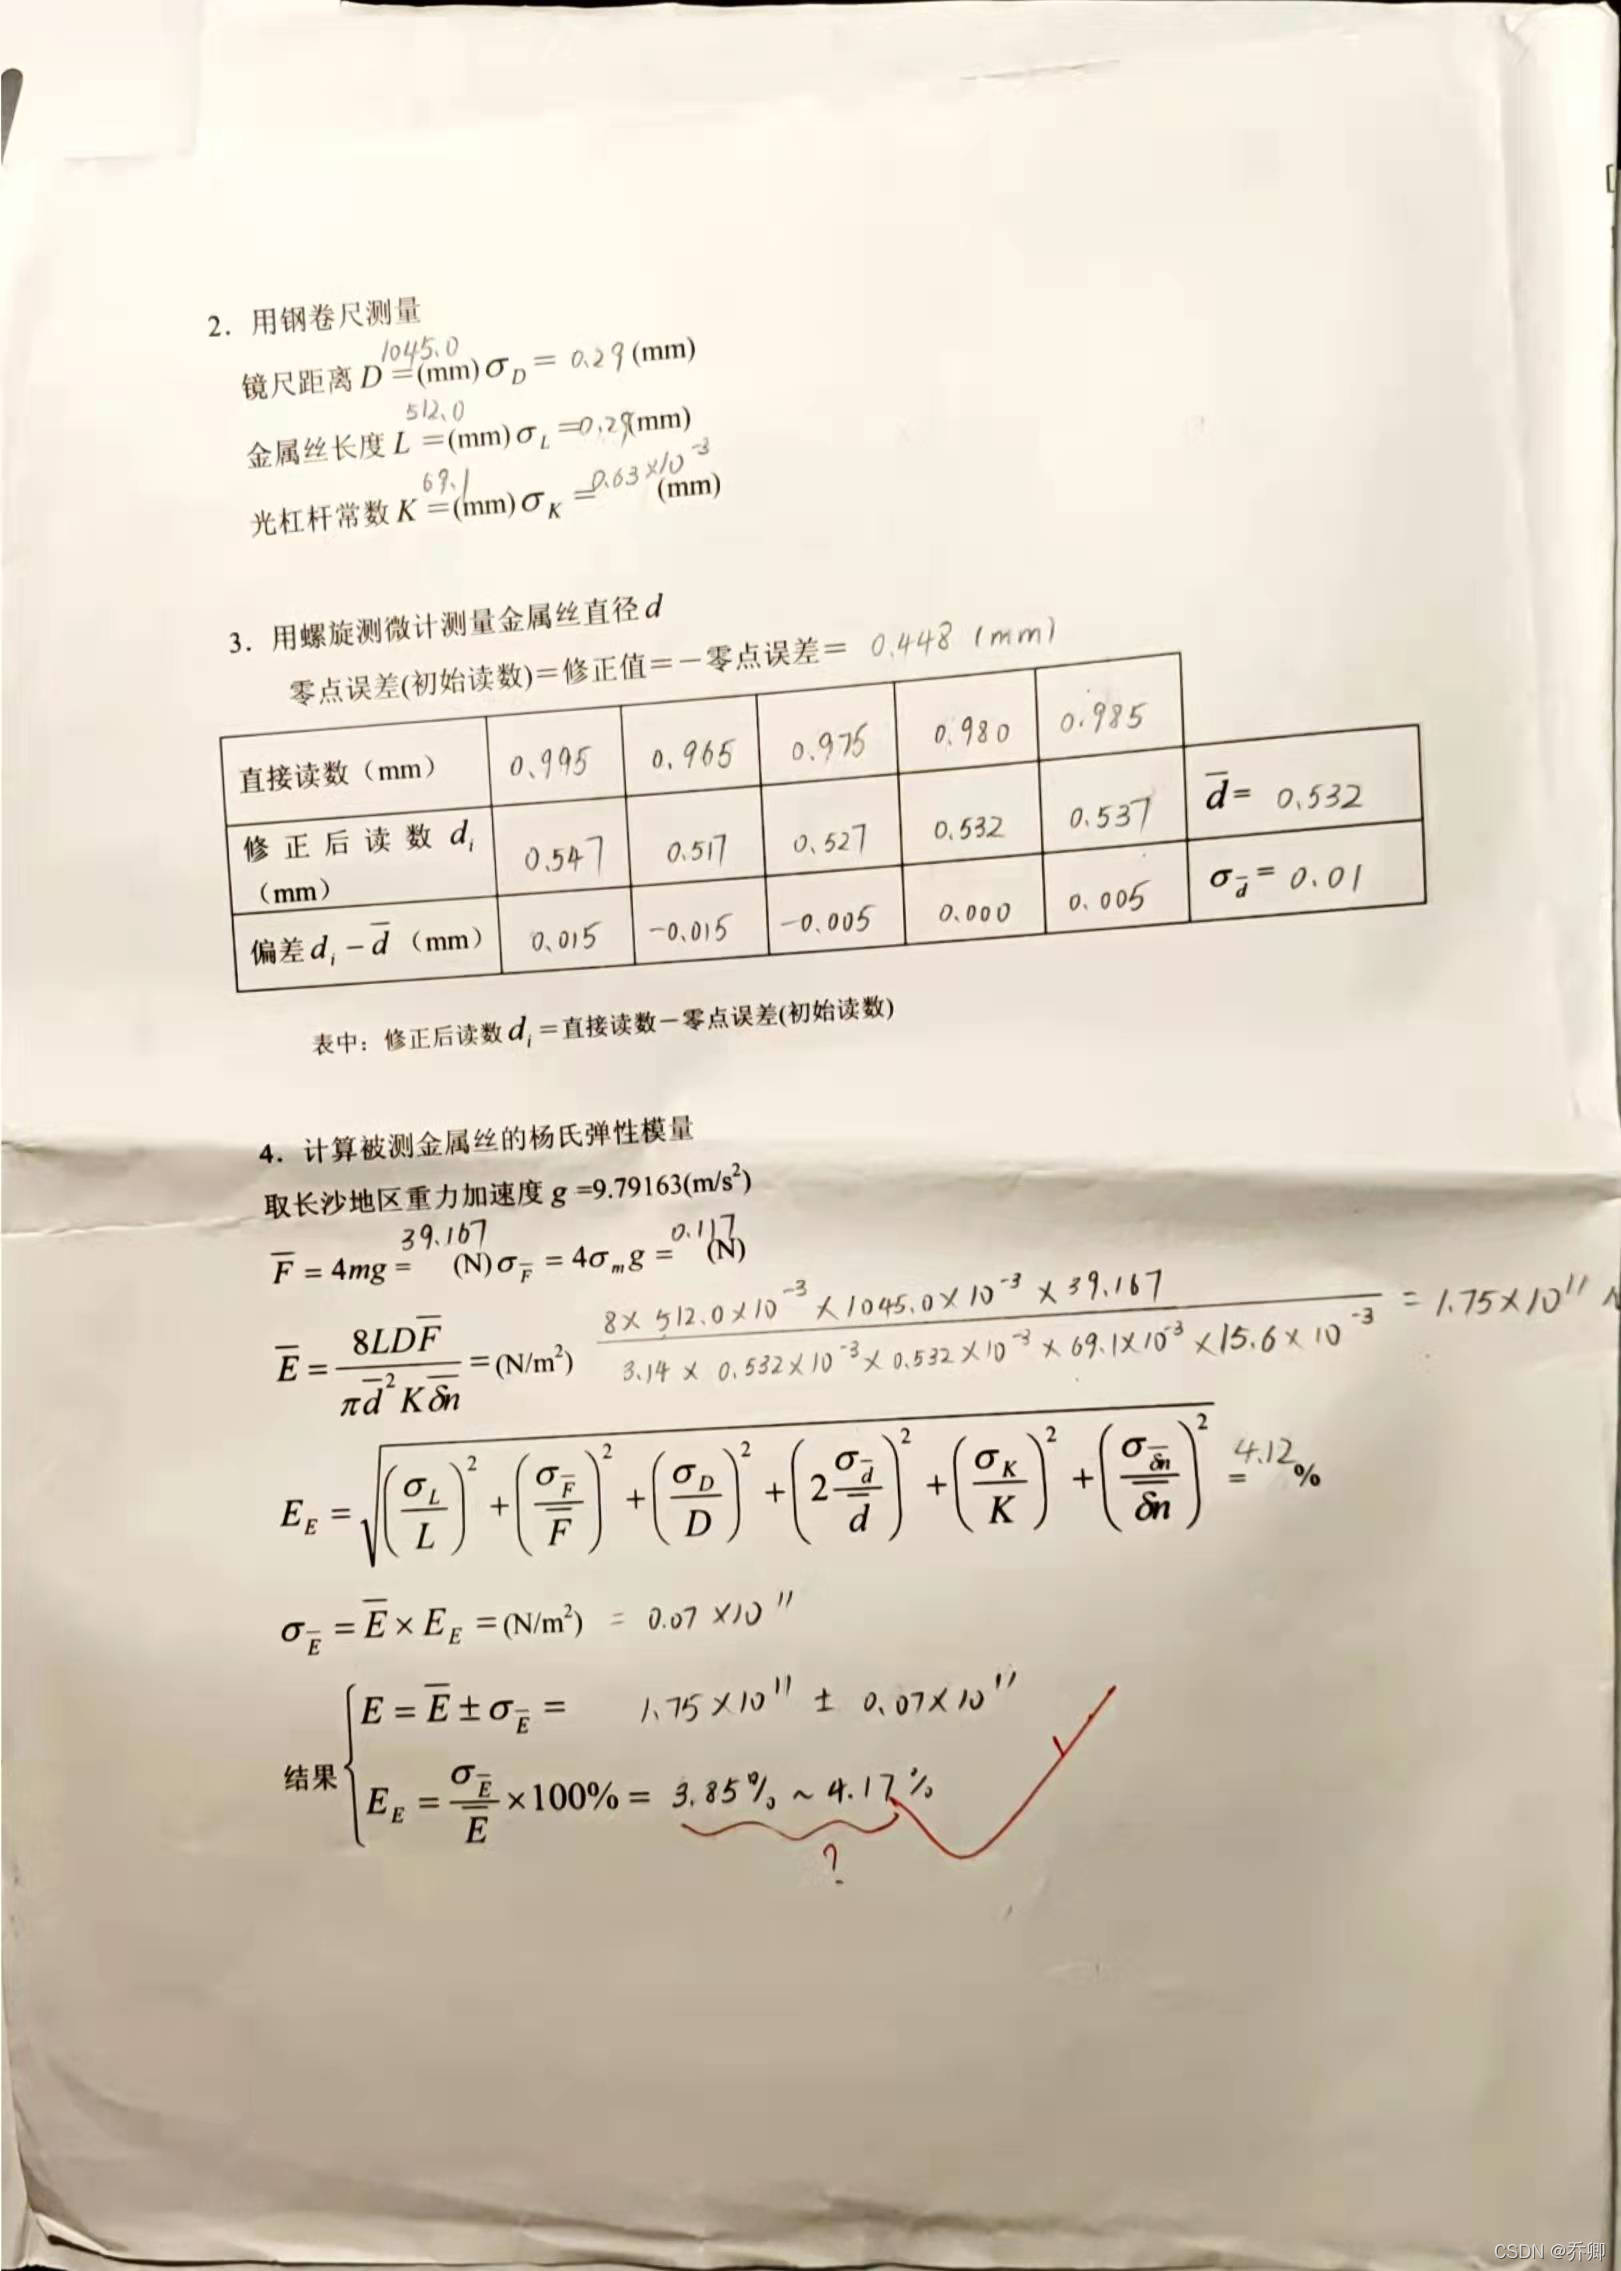 2. 用钢卷尺测量
镜尺距离 D = 1045.0 (mm) σ_D = 0.29 (mm)
金属丝长度 L = 512.0 (mm) σ_L = 0.29 (mm)
光杠杆常数 K = 69.1 (mm) σ_K = 0.63×10⁻³ (mm)
3. 用螺旋测微计测量金属丝直径 d
零点误差(初始读数)=修正值=-零点误差= 0.448 (mm)
直接读数（mm） 0.995 0.965 0.975 0.980 0.985
修正后读数 d_i（mm） 0.547 0.517 0.527 0.532 0.537 d̅= 0.532
偏差 d_i - d̅（mm） 0.015 -0.015 -0.005 0.000 0.005 σ_d̅= 0.01
表中：修正后读数 d_i =直接读数-零点误差(初始读数)
4. 计算被测金属丝的杨氏弹性模量
取长沙地区重力加速度 g =9.79163(m/s²)
F̅ = 4mg = 39.167 (N) σ_F̅ = 4σ_m g = 0.117 (N)
E̅ = 8LDF̅ / πd̅²Kδn̅ = (N/m²) 8×512.0×10⁻³×1045.0×10⁻³×39.167 / 3.14×0.532×10⁻³×0.532×10⁻³×69.1×10⁻³×15.6×10⁻³ = 1.75×10¹¹ N
E_E = √((σ_L/L)² + (σ_F̅/F̅)² + (σ_D/D)² + (2σ_d̅/d̅)² + (σ_K/K)² + (σ_δn̅/δn̅)²) = 4.12%
σ_E̅ = E̅ × E_E = (N/m²) = 0.07×10¹¹
结果 { E = E̅ ± σ_E̅ = 1.75×10¹¹ ± 0.07×10¹¹
E_E = σ_E̅/E̅ ×100% = 3.85% ~ 4.17%
?
CSDN @乔卿